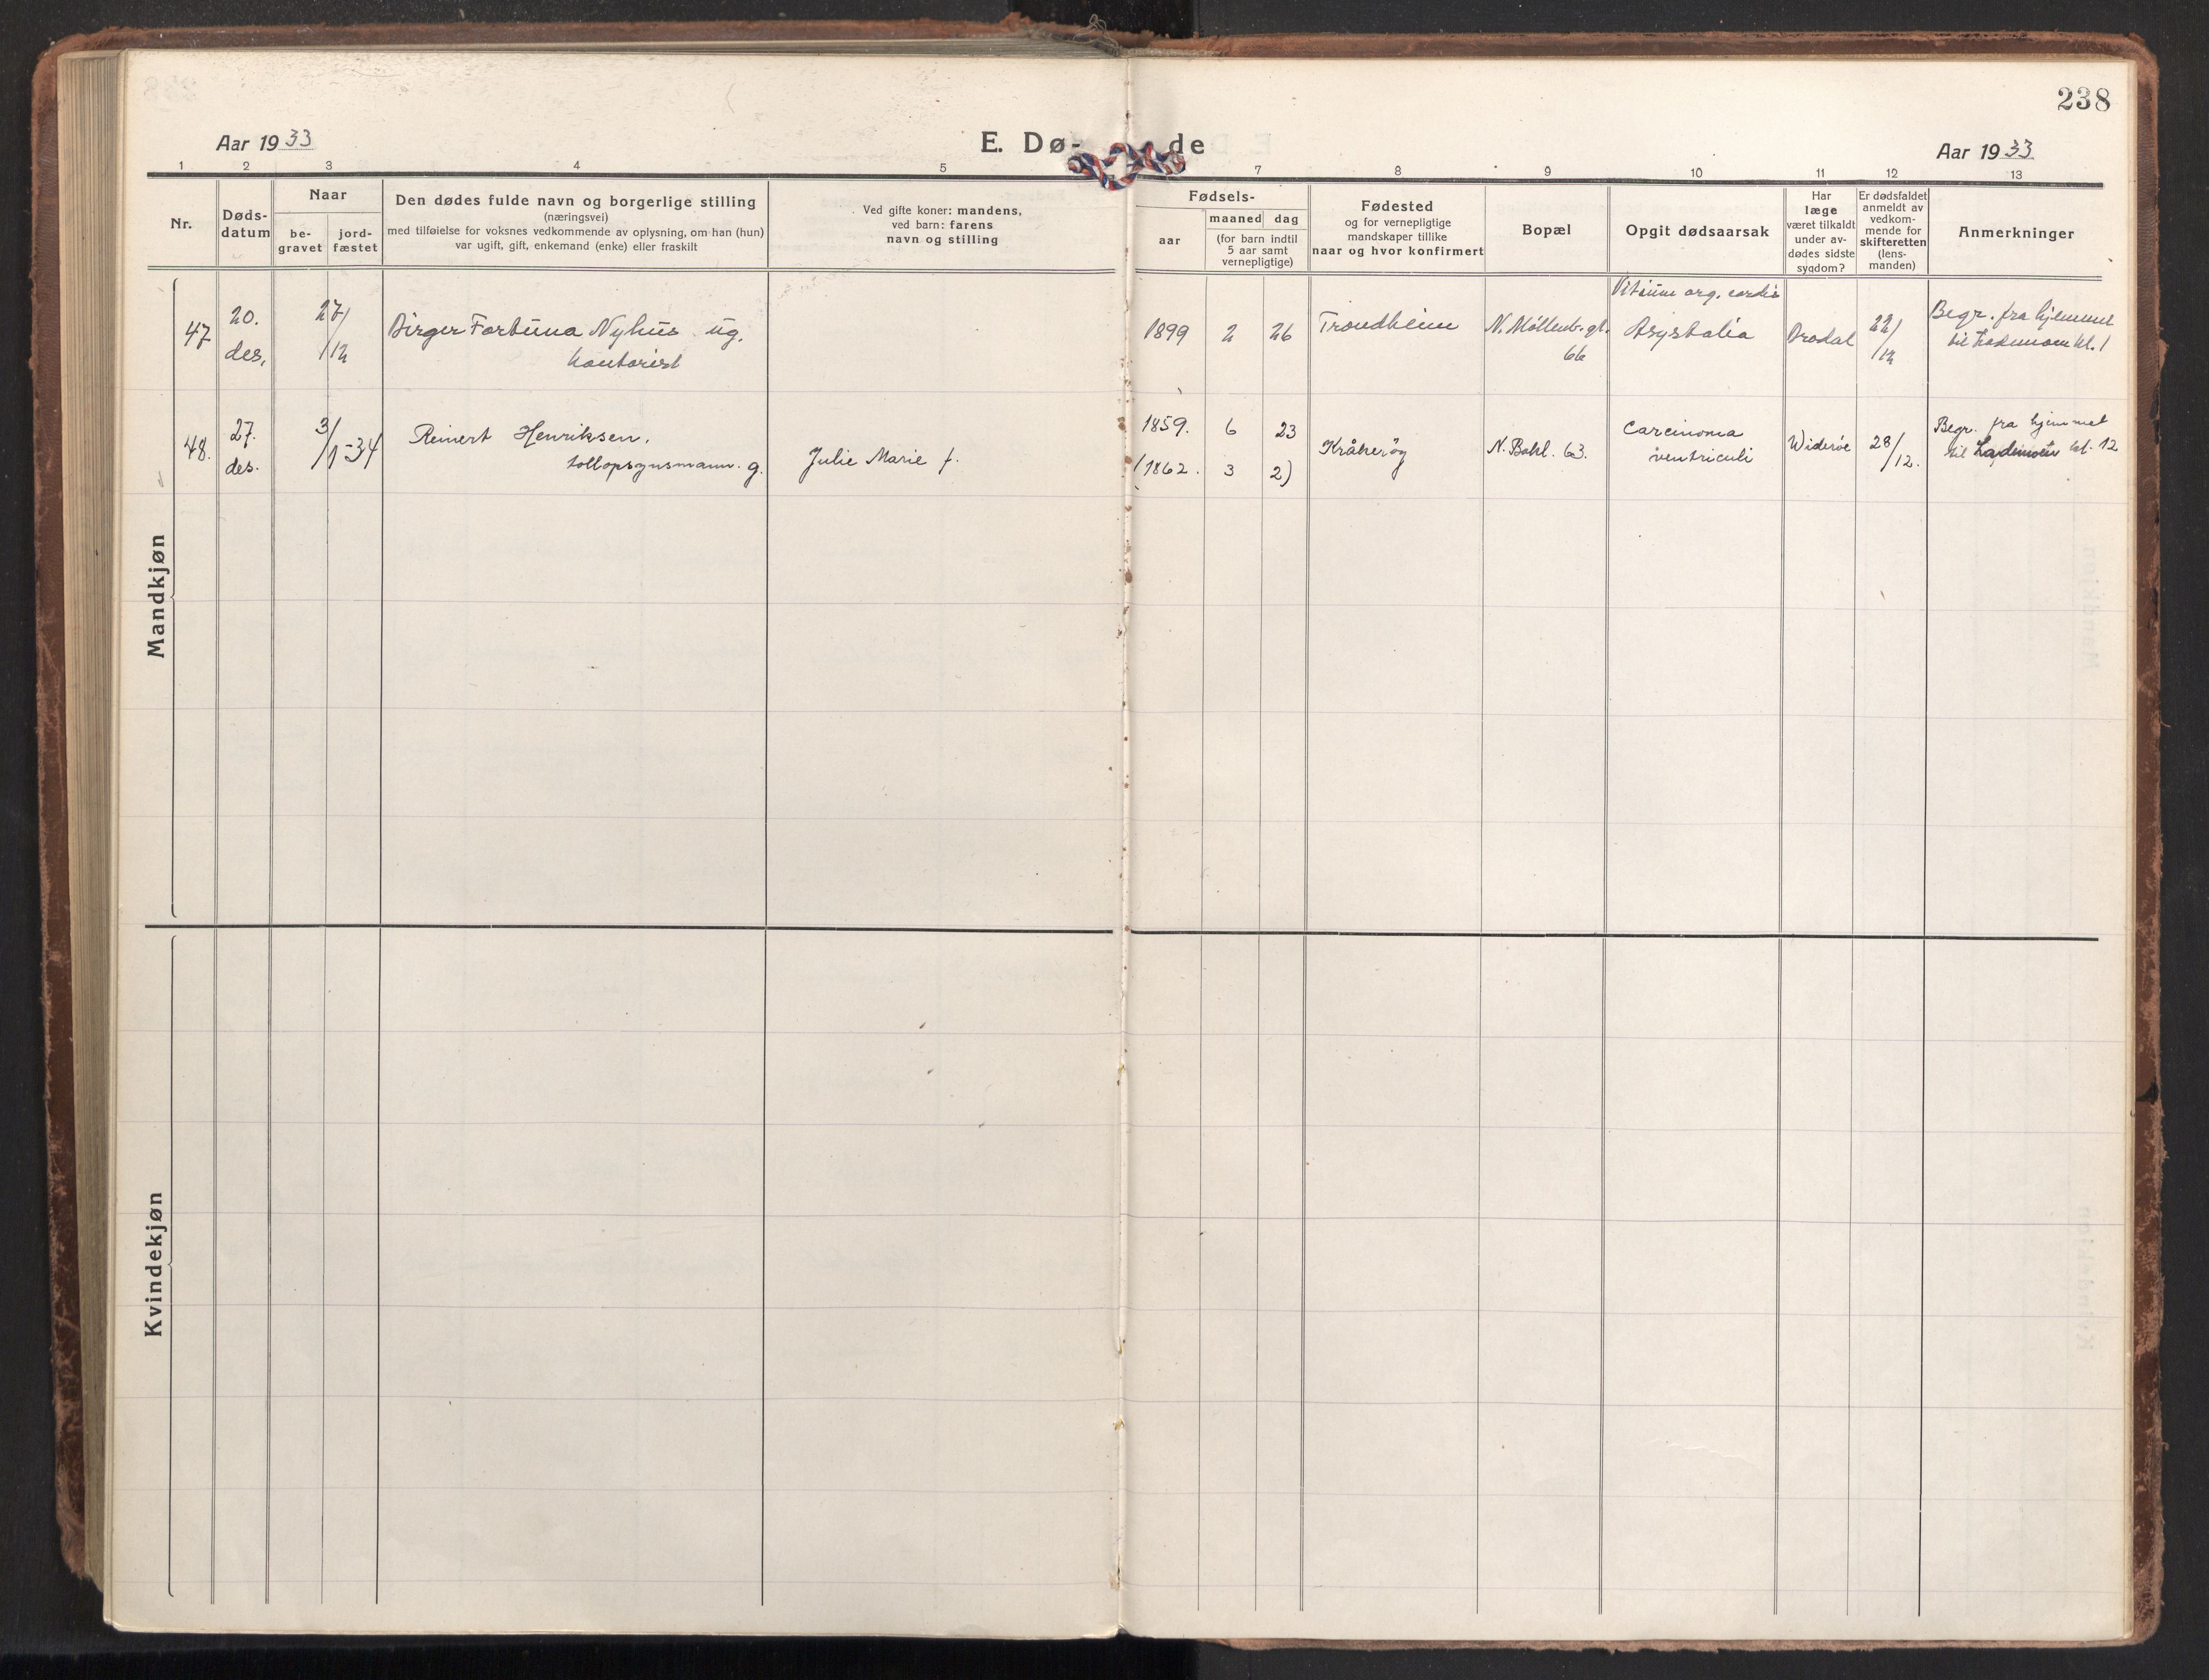 238
Aar 1933
E. Dø-
de
Aar 1933
1 2 3 4 5 7 8 9 10 11 12 13
Nr.
Døds-
datum
Naar
be-
gravet
jord-
fæstet
Den dødes fulde navn og borgerlige stilling
(næringsvei)
med tilføielse for voksnes vedkommende av oplysning, om han (hun)
var ugift, gift, enkemand (enke) eller fraskilt
Ved gifte koner: mandens,
ved barn: farens
navn og stilling
Fødsels-
aar
maaned dag
(for barn indtil
5 aar samt
vernepligtige)
Fødested
og for vernepligtige
mandskaper tillike
naar og hvor konfirmert
Bopæl
Opgit dødsaarsak
Har
læge
været tilkaldt
under av-
dødes sidste
sygdom?
Er dødsfaldet
anmeldt av
vedkom-
mende for
skifteretten
(lens-
manden)
Anmerkninger
Mandkjøn
47
20.
des.
27/
/12
Birger Fortuna Nyhus ug.
kontorist
1899 2 26
Trondheim
N. Møllenb. gt.
66
Vitium org. cordis
Asystolia
Brodal
22/
/12
Begr. fra hjemmet
til Lademoen kl. 1
48.
27.
des.
3/
/1-34
Reinert Henriksen.
tollopsynsmann. g.
Julie Marie f.
1859. 6 23
(1862. 3 2)
Kråkerøy
N. Bakl. 63.
Carcinoma
ventriculi
Widerøe
28/
/12.
Begr. fra hjemmet
til Lademoen kl. 12
Kvindekjøn